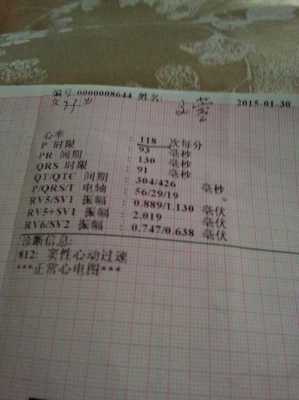 编号:0000008644 姓名: 2015-01-30
女 岁
心率 : 118 次每分
P 时限 : 93 毫秒
PR 间期 : 130 毫秒
QRS 时限 : 91 毫秒
QT/QTC 间期 : 304/426 毫秒
P/QRS/T 电轴 : 56/29/19 °
RV5/SV1 振幅 : 0.889/1.130 毫伏
RV5+SV1 振幅 : 2.019 毫伏
RV6/SV2 振幅 : 0.747/0.638 毫伏
诊断信息:
812: 窦性心动过速
***正常心电图***